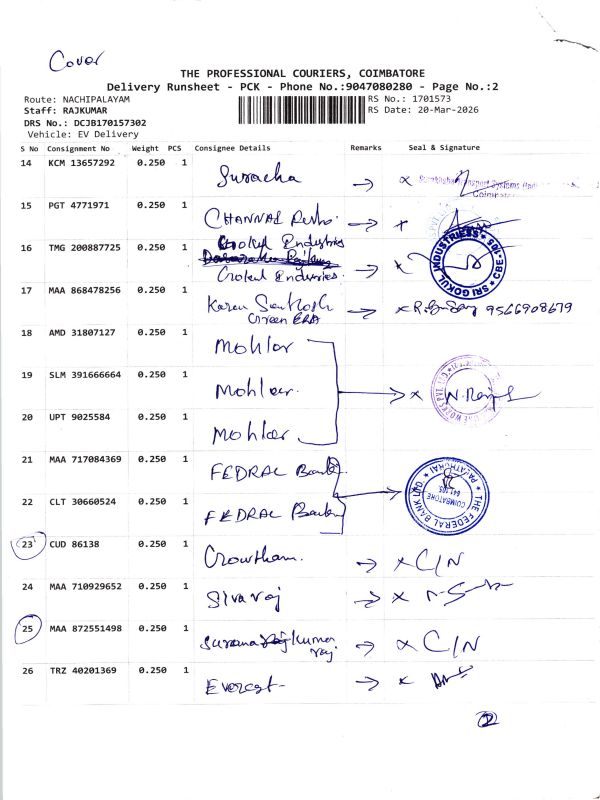 Cover
THE PROFESSIONAL COURIERS, COIMBATORE
Delivery Runsheet - PCK - Phone No.:9047080280 - Page No.:2
Route: NACHIPALAYAM
RS No.: 1701573
Staff: RAJKUMAR
RS Date: 20-Mar-2026
DRS No.: DCJB170157302
Vehicle: EV Delivery
S No Consignment No Weight PCS Consignee Details Remarks Seal & Signature
14 KCM 13657292 0.250 1 Suracha → x
15 PGT 4771971 0.250 1 CHANNAL → x
16 TMG 200887725 0.250 1 Gokul Endustries
Gokul Endustries. → x SRI GOKUL INDUSTRIESS CBE
17 MAA 868478256 0.250 1 Karan Santhosh → x 9566908679
Green ERA
18 AMD 31807127 0.250 1 Mohlor
19 SLM 391666664 0.250 1 Mohlor. → x N.
20 UPT 9025584 0.250 1 Mohlor
21 MAA 717084369 0.250 1 FEDRAL Bank
22 CLT 30660524 0.250 1 FEDRAL Bank → THE FEDERAL BANK LTD PALATHURAI COIMBATORE
23 CUD 86138 0.250 1 Gowtham. → x C/N
24 MAA 710929652 0.250 1 Sivaraj → x
25 MAA 872551498 0.250 1 kumar → x C/N
raj
26 TRZ 40201369 0.250 1 Everest → x
2